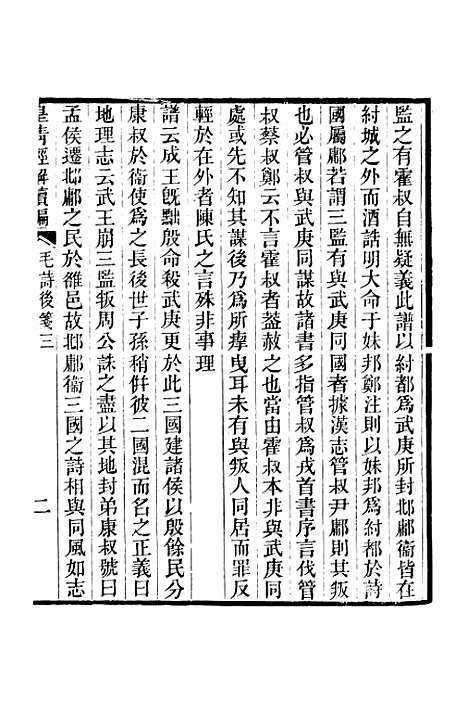 監之有霍叔自無疑義此譜以紂都爲武庚所封邶鄘衞皆在
紂城之外而酒誥明大命于妹邦鄭注則以妹邦爲紂都於詩
國屬鄘若謂三監有與武庚同國者據漢志管叔尹鄘則其叛
也必管叔與武庚同謀故諸書多指管叔爲戎首書序言伐管
叔蔡叔鄭云不言霍叔者葢赦之也當由霍叔本非與武庚同
處或先不知其謀後乃爲所瘴曳耳未有與叛人同居而罪反
輕於在外者陳氏之言殊非事理
譜云成王旣黜殷命殺武庚更於此三國建諸侯以殷餘民分
康叔於衞使爲之長後世子孫稍倂彼二國混而名之正義曰
地理志云武王崩三監叛周公誅之盡以其地封弟康叔號曰
孟侯遷邶鄘之民於雒邑故邶鄘衞三國之詩相與同風如志
皇淸經解續編
毛詩後箋三
二